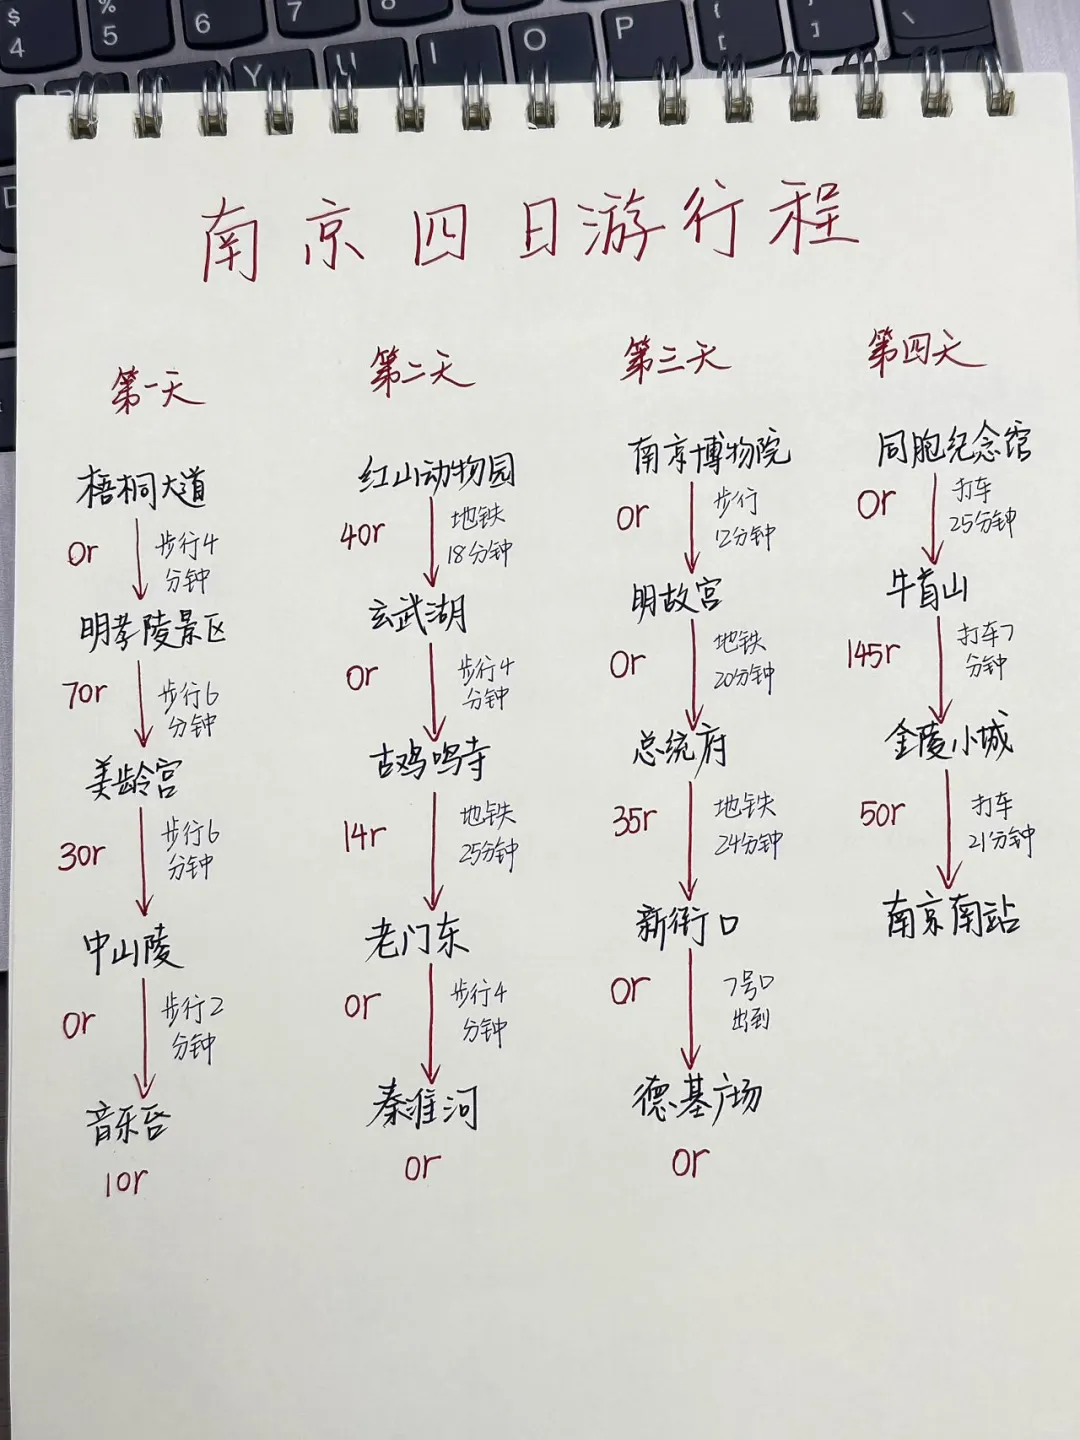 $
4
%
5
6
7
8
Y
U
I
O
P
{
[
}
]
\
南京四日游行程
第一天
梧桐大道
0r
步行4
分钟
明孝陵景区
70r
步行6
分钟
美龄宫
30r
步行6
分钟
中山陵
0r
步行2
分钟
音乐台
10r
第二天
红山动物园
40r
地铁
18分钟
玄武湖
0r
步行4
分钟
古鸡鸣寺
14r
地铁
25分钟
老门东
0r
步行4
分钟
秦淮河
0r
第三天
南京博物院
0r
步行
12分钟
明故宫
0r
地铁
20分钟
总统府
35r
地铁
24分钟
新街口
0r
7号口
出到
德基广场
0r
第四天
同胞纪念馆
0r
打车
25分钟
牛首山
145r
打车7
分钟
金陵小城
50r
打车
21分钟
南京南站